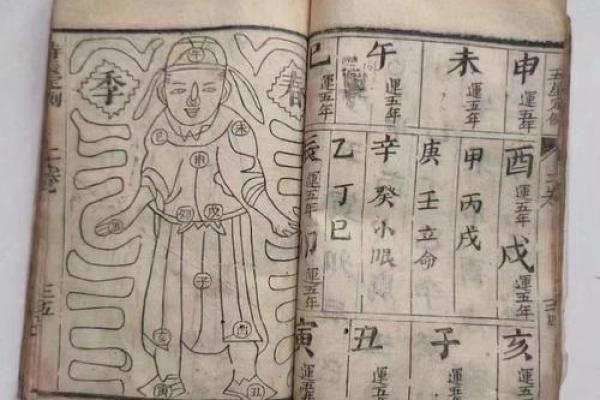 申 運五年
未 運五年
午 運五年
巳 運五年
酉 運五年
戌 運五年
甲丙戌
庚壬立命
辛癸小眼
乙丁巳
辰 運五年
卯 運五年
亥 運五年
子 運五年
丑 運五年
寅 運五年
春季
午
未
巳
申
戌
卯
子
酉
亥
丑
寅
二卷
三五